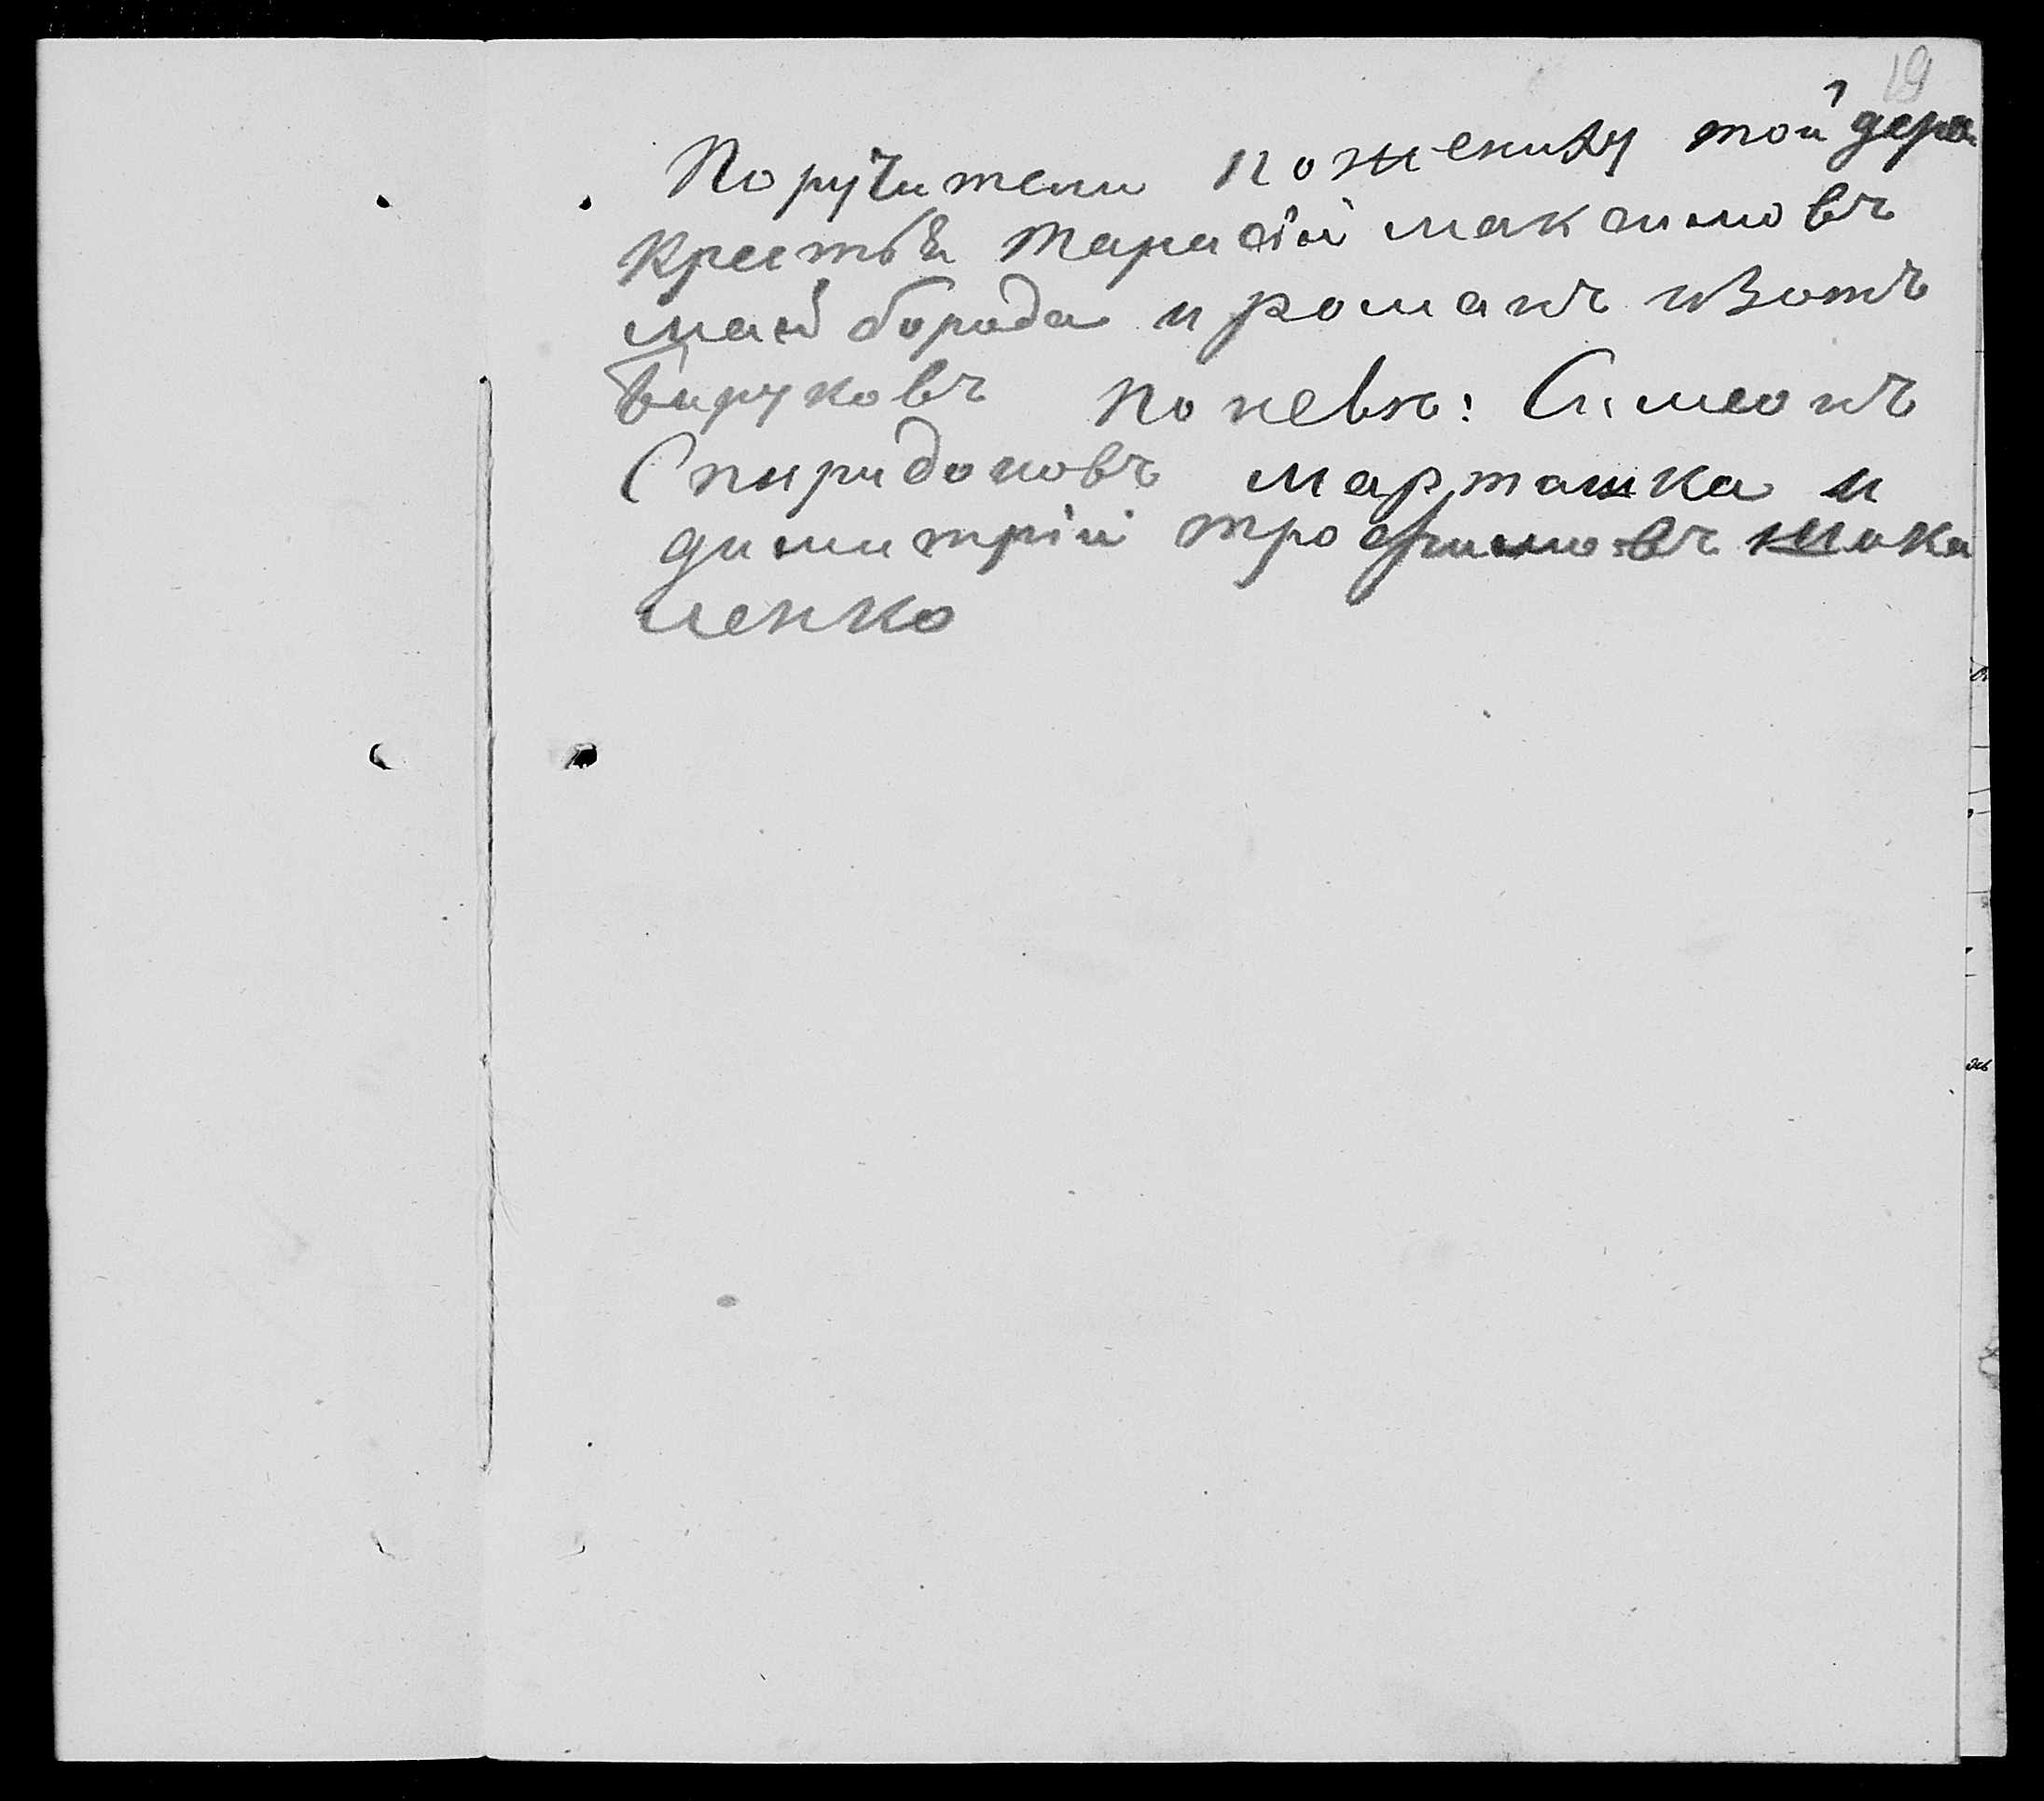 19
Поручители пожениху той дера
крестья тарасiй максимовъ
май борода и романъ изотъ
Бируковъ поневѣс: Симеонъ
Спиридоновъ марташка и
димитрiй трофимовъ шака
ленко